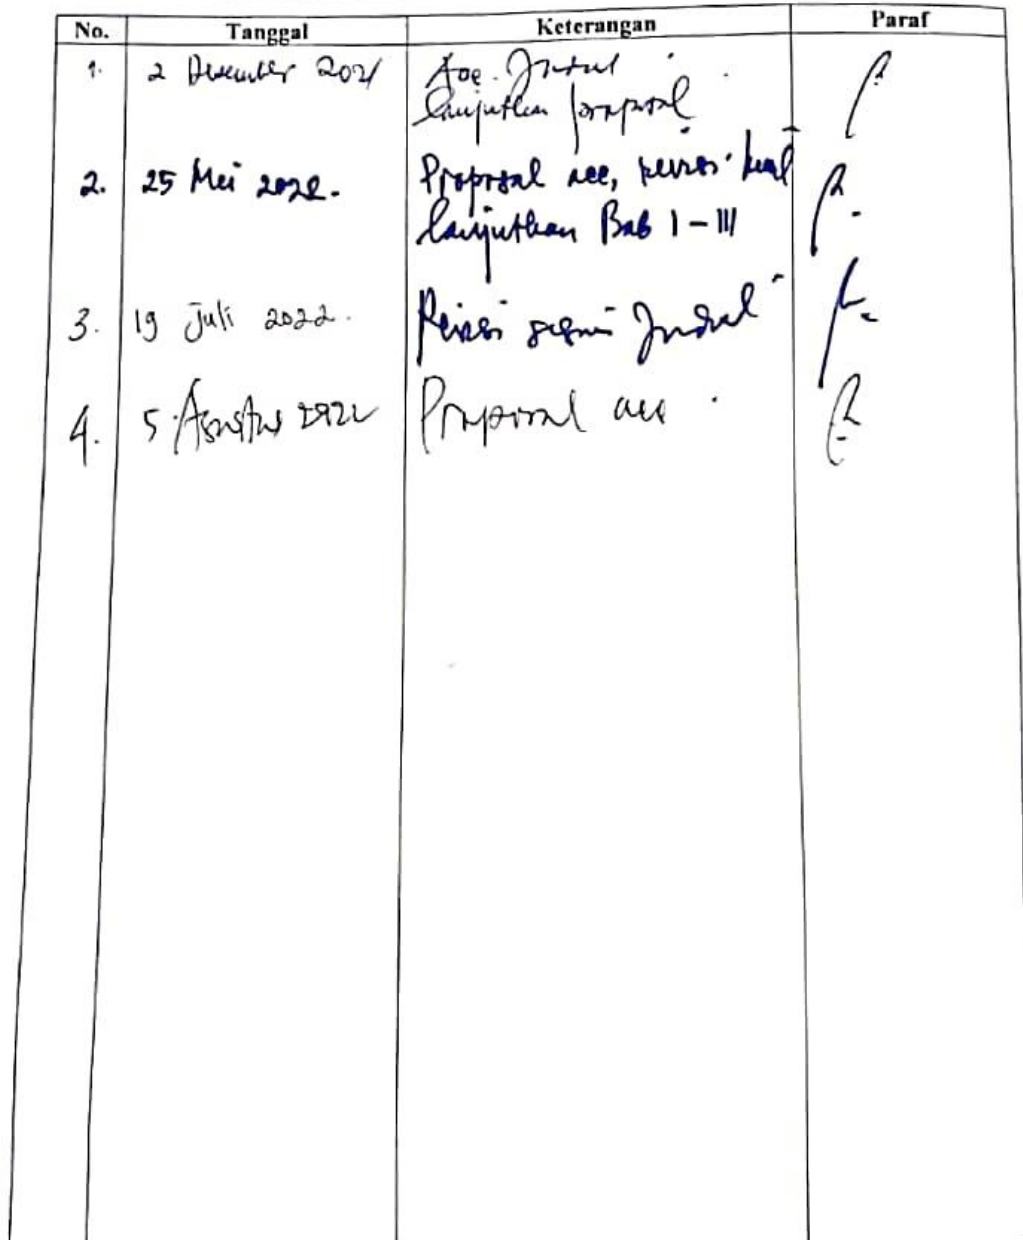 No. Tanggal Keterangan Paraf
1. 2 Desember 2021 Acc. Judul
lanjutkan proposal
2. 25 Mei 2022. Proposal acc, revisi
lanjutkan Bab I - III
3. 19 Juli 2022. Revisi sesuai Judul
4. 5 Agustus 2022 Proposal acc.